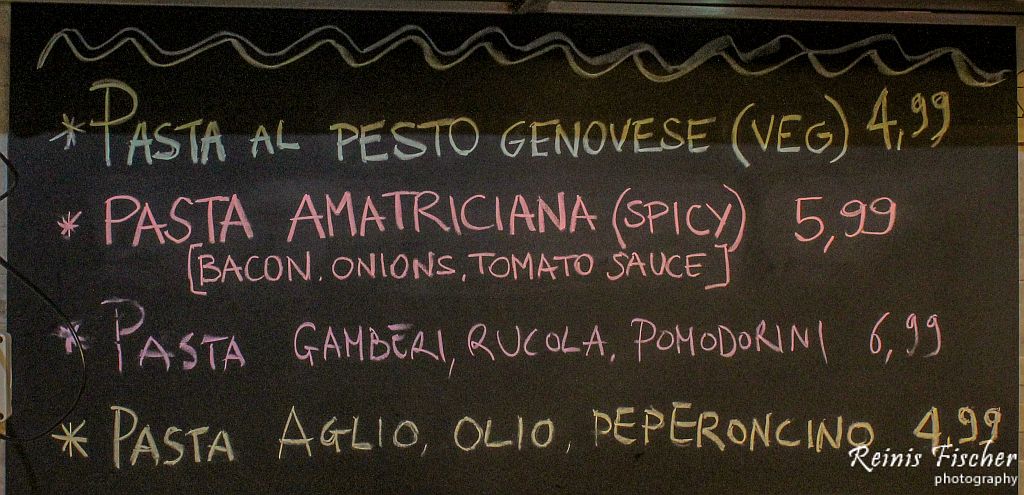 * PASTA AL PESTO GENOVESE (VEG) 4,99
* PASTA AMATRICIANA (SPICY) 5,99
[BACON, ONIONS, TOMATO SAUCE]
* PASTA GAMBERI, RUCOLA, POMODORINI 6,99
* PASTA AGLIO, OLIO, PEPERONCINO 4,99
Reinis Fischer
photography